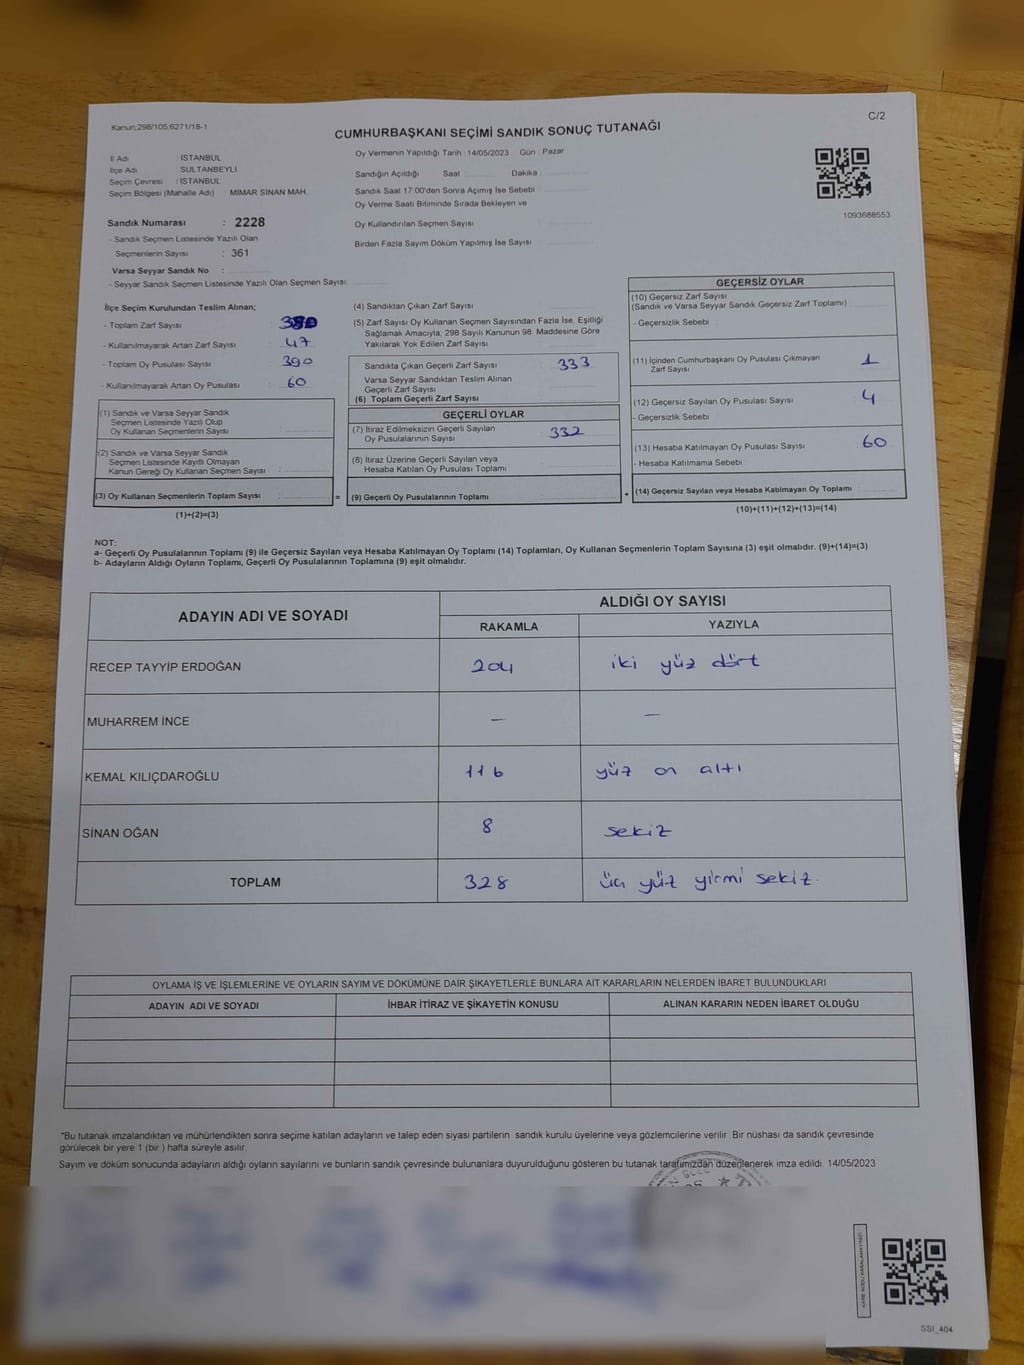 Kanun;298/105;6271/18-1
C/2
CUMHURBAŞKANI SEÇİMİ SANDIK SONUÇ TUTANAĞI
İl Adı : İSTANBUL
İlçe Adı SULTANBEYLİ
Seçim Çevresi : İSTANBUL
Seçim Bölgesi (Mahalle Adı) MİMAR SİNAN MAH.
Oy Vermenin Yapıldığı Tarih : 14/05/2023 Gün : Pazar
Sandığın Açıldığı Saat Dakika
Sandık Saat 17:00'den Sonra Açımış İse Sebebi
Oy Verme Saati Bitiminde Sırada Bekleyen ve
Oy Kullandırılan Seçmen Sayısı
Birden Fazla Sayım Döküm Yapılmış İse Sayısı
1093688553
Sandık Numarası : 2228
- Sandık Seçmen Listesinde Yazılı Olan
Seçmenlerin Sayısı : 361
Varsa Seyyar Sandık No :
- Seyyar Sandık Seçmen Listesinde Yazılı Olan Seçmen Sayısı
İlçe Seçim Kurulundan Teslim Alınan;
- Toplam Zarf Sayısı
- Kullanılmayarak Artan Zarf Sayısı 47
- Toplam Oy Pusulası Sayısı 390
- Kullanılmayarak Artan Oy Pusulası 60
(1) Sandık ve Varsa Seyyar Sandık
Seçmen Listesinde Yazılı Olup
Oy Kullanan Seçmenlerin Sayısı
(2) Sandık ve Varsa Seyyar Sandık
Seçmen Listesinde Kayıtlı Olmayan
Kanun Gereği Oy Kullanan Seçmen Sayısı
(3) Oy Kullanan Seçmenlerin Toplam Sayısı :
(1)+(2)=(3)
(4) Sandıktan Çıkan Zarf Sayısı
(5) Zarf Sayısı Oy Kullanan Seçmen Sayısından Fazla İse, Eşitliği
Sağlamak Amacıyla; 298 Sayılı Kanunun 98. Maddesine Göre
Yakılarak Yok Edilen Zarf Sayısı
Sandıkta Çıkan Geçerli Zarf Sayısı 333
Varsa Seyyar Sandıktan Teslim Alınan
Geçerli Zarf Sayısı
(6) Toplam Geçerli Zarf Sayısı
GEÇERLİ OYLAR
(7) İtiraz Edilmeksizin Geçerli Sayılan
Oy Pusulalarının Sayısı 332
(8) İtiraz Üzerine Geçerli Sayılan veya
Hesaba Katılan Oy Pusulası Toplamı
= (9) Geçerli Oy Pusulalarının Toplamı +
GEÇERSİZ OYLAR
(10) Geçersiz Zarf Sayısı
(Sandık ve Varsa Seyyar Sandık Geçersiz Zarf Toplamı)
- Geçersizlik Sebebi
(11) İçinden Cumhurbaşkanı Oy Pusulası Çıkmayan
Zarf Sayısı 1
(12) Geçersiz Sayılan Oy Pusulası Sayısı 4
- Geçersizlik Sebebi
(13) Hesaba Katılmayan Oy Pusulası Sayısı 60
- Hesaba Katılmama Sebebi
(14) Geçersiz Sayılan veya Hesaba Katılmayan Oy Toplamı
(10)+(11)+(12)+(13)=(14)
NOT:
a- Geçerli Oy Pusulalarının Toplamı (9) ile Geçersiz Sayılan veya Hesaba Katılmayan Oy Toplamı (14) Toplamları, Oy Kullanan Seçmenlerin Toplam Sayısına (3) eşit olmalıdır. (9)+(14)=(3)
b- Adayların Aldığı Oyların Toplamı, Geçerli Oy Pusulalarının Toplamına (9) eşit olmalıdır.
ADAYIN ADI VE SOYADI ALDIĞI OY SAYISI
RAKAMLA YAZIYLA
RECEP TAYYİP ERDOĞAN 204 iki yüz dört
MUHARREM İNCE — —
KEMAL KILIÇDAROĞLU 116 yüz on altı
SİNAN OĞAN 8 sekiz
TOPLAM 328 üç yüz yirmi sekiz.
OYLAMA İŞ VE İŞLEMLERİNE VE OYLARIN SAYIM VE DÖKÜMÜNE DAİR ŞİKAYETLERLE BUNLARA AİT KARARLARIN NELERDEN İBARET BULUNDUKLARI
ADAYIN ADI VE SOYADI İHBAR İTİRAZ VE ŞİKAYETİN KONUSU ALINAN KARARIN NEDEN İBARET OLDUĞU
*Bu tutanak imzalandıktan ve mühürlendikten sonra seçime katılan adayların ve talep eden siyasi partilerin sandık kurulu üyelerine veya gözlemcilerine verilir. Bir nüshası da sandık çevresinde
görülecek bir yere 1 (bir ) hafta süreyle asılır.
Sayım ve döküm sonucunda adayların aldığı oyların sayılarını ve bunların sandık çevresinde bulunanlara duyurulduğunu gösteren bu tutanak tarafımızdan düzenlenerek imza edildi. 14/05/2023
SSİ_404